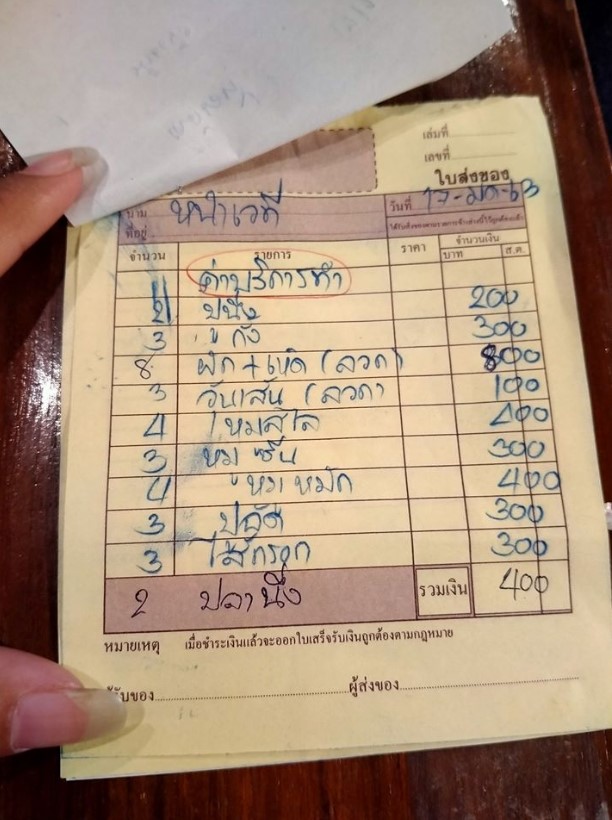 เล่มที่
เลขที่
ใบส่งของ
นาม หน้าเวที วันที่ 17-มค-63
ที่อยู่
จำนวน รายการ ราคา จำนวนเงิน
บาท ส.ต.
ค่าบริการทำ
2 ปูนึ่ง 200
3 " กุ้ง 300
8 ผัก+เห็ด (ลวก) 800
3 วุ้นเส้น (ลวก) 100
4 หมูสไล 400
3 หมูชิ้น 300
4 หมูหมัก 400
3 300
3 ไส้กรอก 300
2 ปลานึ่ง รวมเงิน 400
หมายเหตุ เมื่อชำระเงินแล้วจะออกใบเสร็จรับเงินถูกต้องตามกฎหมาย
ผู้รับของ ผู้ส่งของ